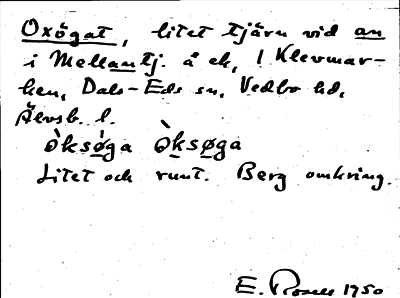 Oxögat, litet tjärn vid an
i Mellantj. å ek, i Klevmar-
ken, Dals-Eds sn, Vedbo hd,
Älvsb. l.
òksø̀ga òksøga
Litet och runt. Berg omkring.
E. Rosell 1950